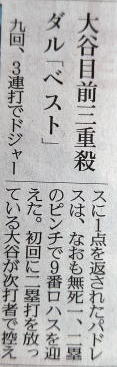 大谷目前三重殺
ダル「ベスト」
九回、3連打でドジャー
スに1点を返されたパドレ
スは、なおも無死一、二塁
のピンチで9番ロハスを迎
えた。初回に二塁打を放っ
ている大谷が次打者で控え